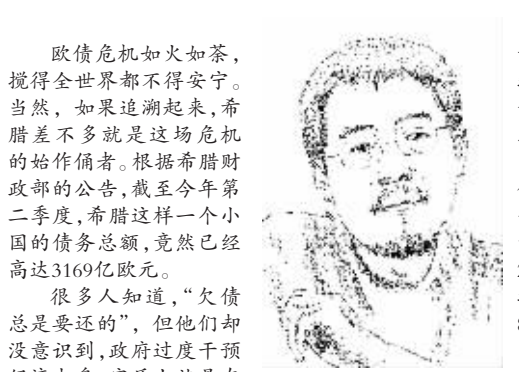 欧债危机如火如荼，
搅得全世界都不得安宁。
当然，如果追溯起来，希
腊差不多就是这场危机
的始作俑者。根据希腊财
政部的公告，截至今年第
二季度，希腊这样一个小
国的债务总额，竟然已经
高达3169亿欧元。
很多人知道，“欠债
总是要还的”，但他们却
没意识到，政府过度干预